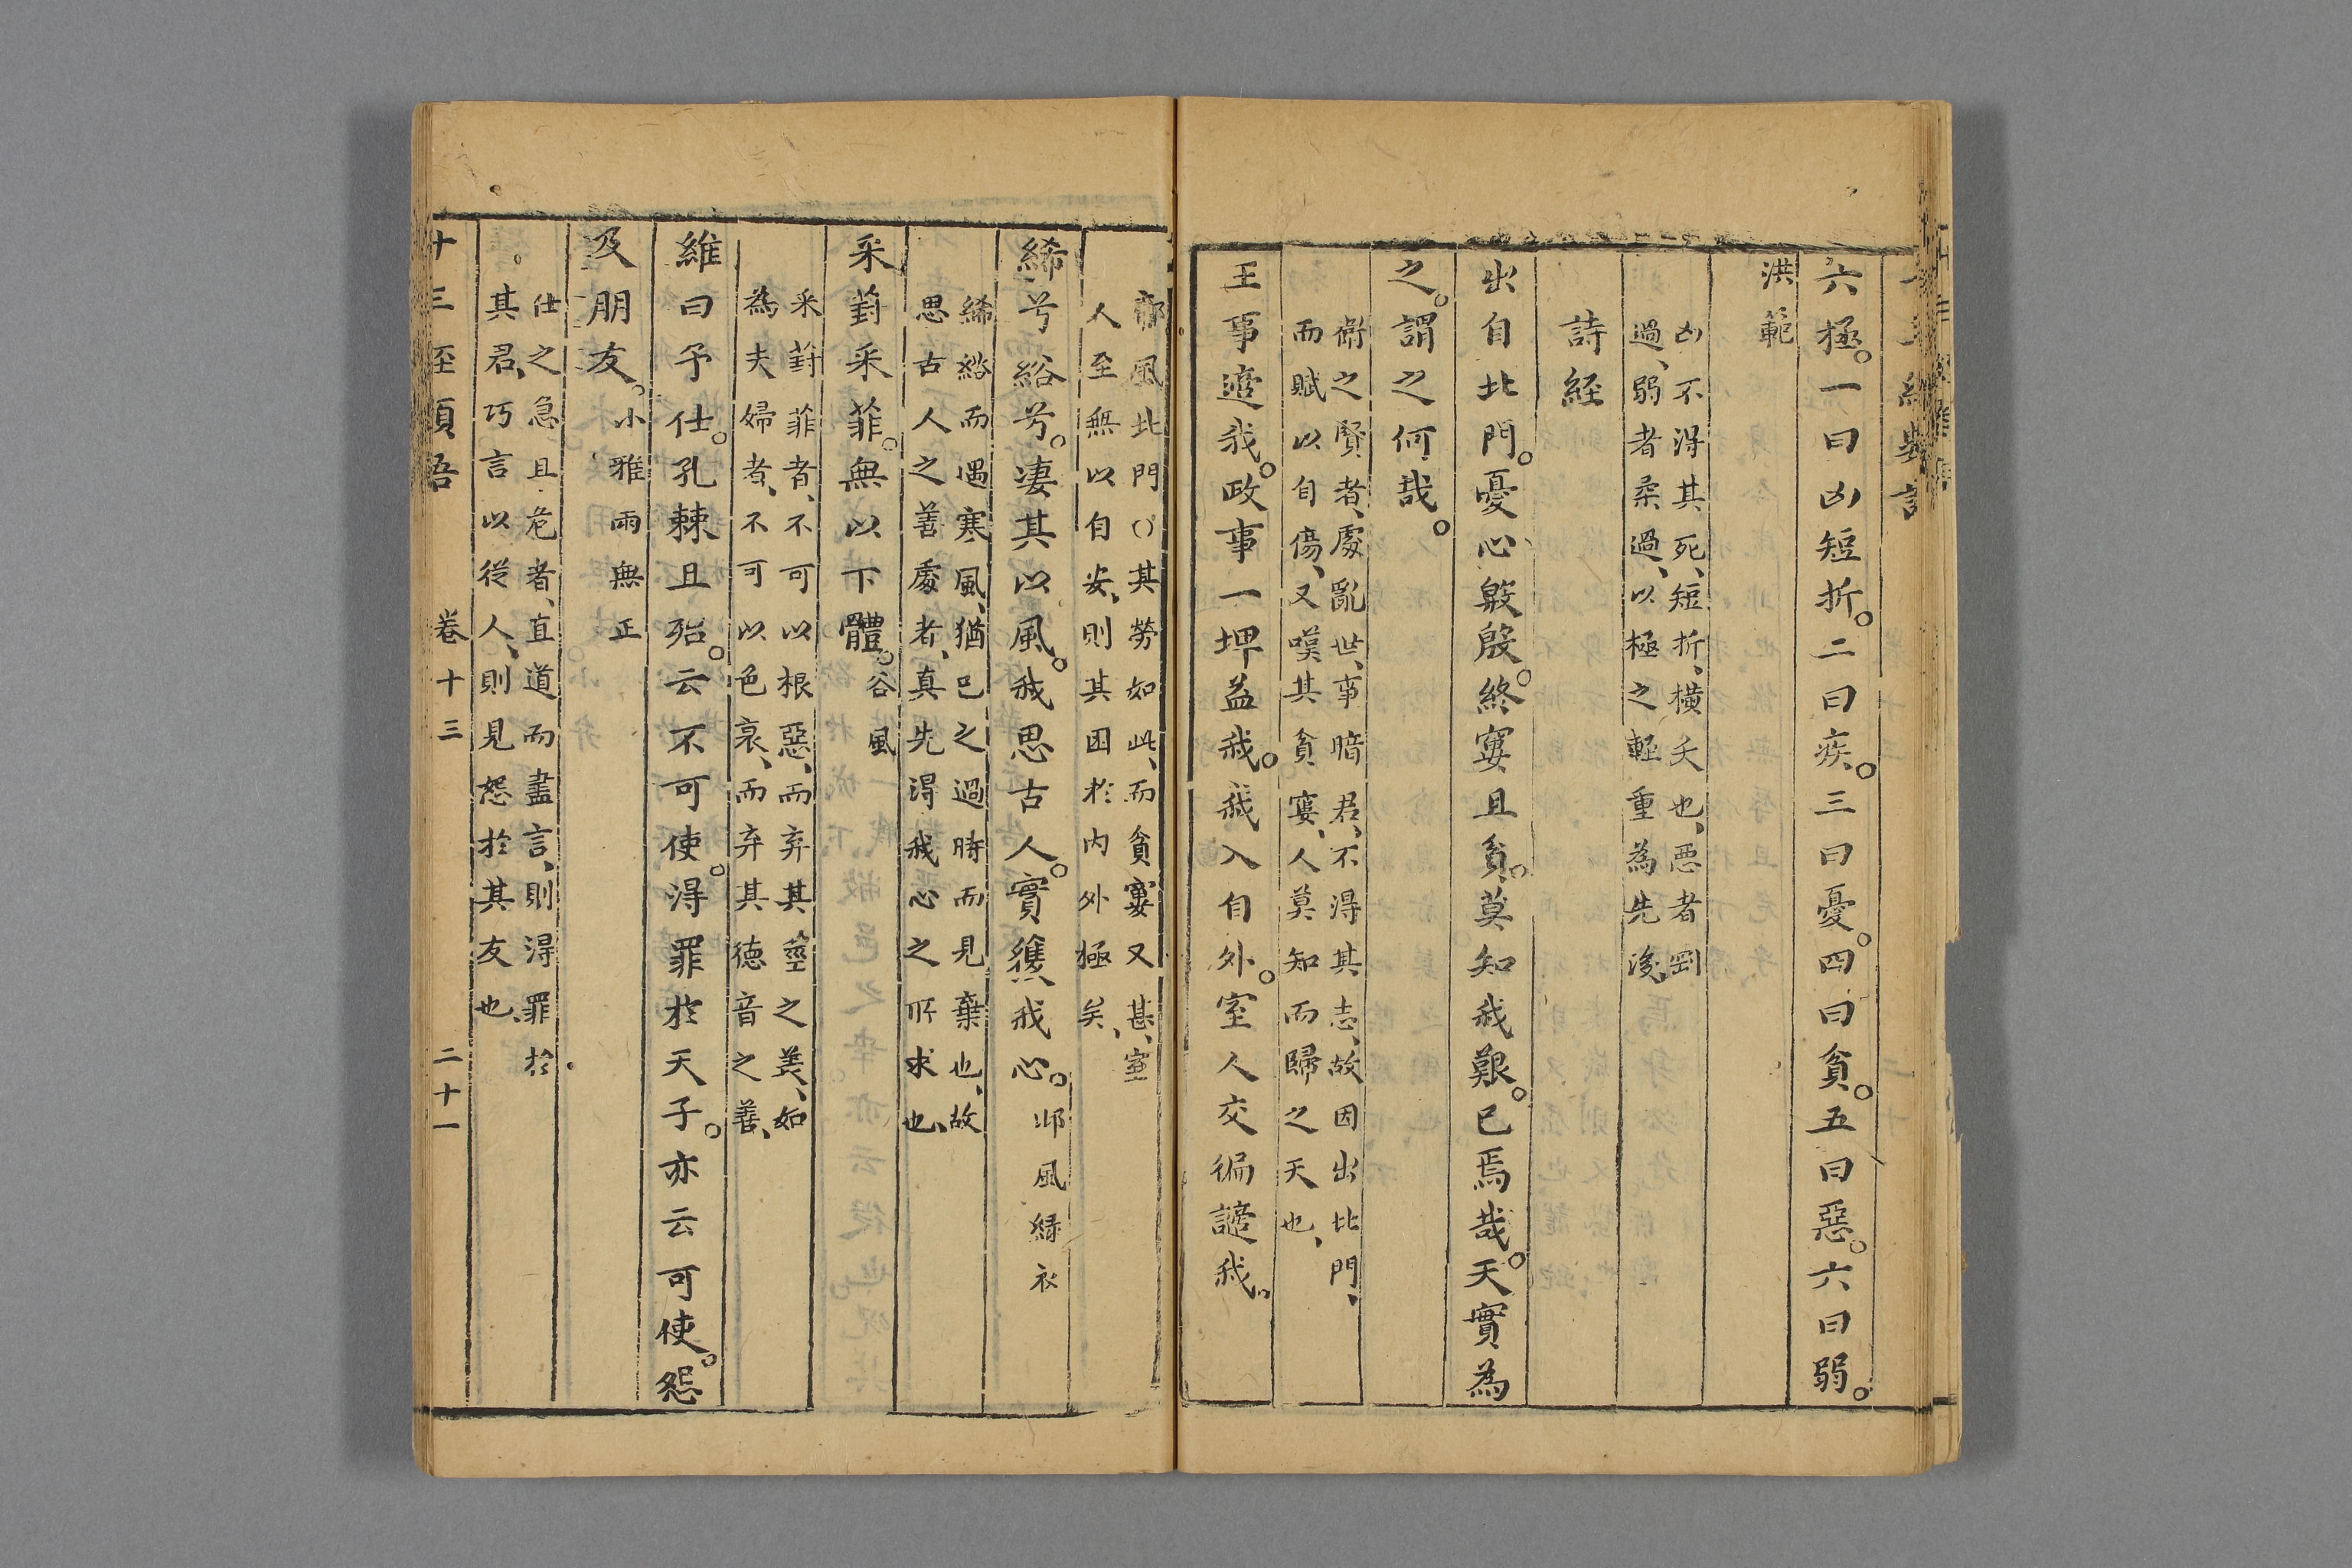 六極。一曰凶短折。二曰疾。三曰憂。四曰貧。五曰惡。六曰弱。
洪範
凶不得其死、短折、橫夭也、惡者罰
過、弱者柔過、以極之輕重為先後、
詩経
出自北門。憂心殷殷。終窶且貧。莫知我艱。已焉哉。天實為
之。謂之何哉。
衛之賢者、處亂世、事暗君、不得其志、故因出北門、
而賦以自傷、又嘆其貧窶、人莫知而歸之天也、
王事適我。政事一埤益我。我入自外。室人交徧謫我。
邶風北門○其勞如此、而貧窶又甚、室
人至無以自安、則其困於內外極矣、
絺兮綌兮。凄其以風。我思古人。實獲我心。邶風緑衣
絺綌而遇寒風、猶已之過時而見棄也、故
思古人之善處者、真先得我心之所求也、
采葑采菲。無以下體。谷風
采葑菲者、不可以根惡、而弃其莖之美、如
為夫婦者、不可以色衰、而弃其德音之善、
維曰予仕。孔棘且殆。云不可使。得罪於天子。亦云可使。怨
及朋友。小雅雨無正
仕之急且危者、直道而盡言、則得罪於
其君、巧言以從人、則見怨於其友也、
卷十三 二十一